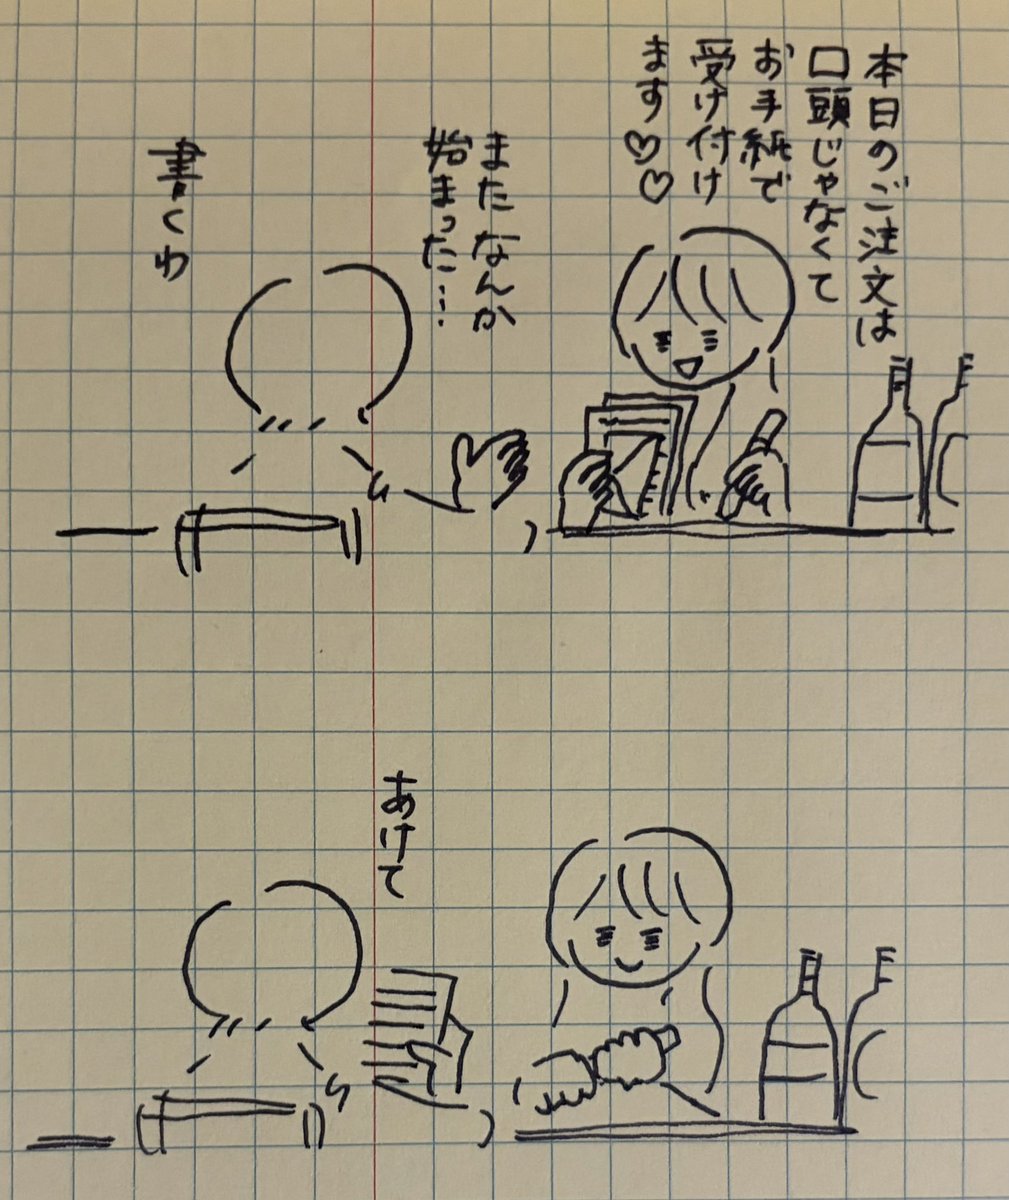 本日のご注文は
口頭じゃなくて
お手紙で
受け付け
ます♡♡
またなんか
始まった…
書くわ
あけて